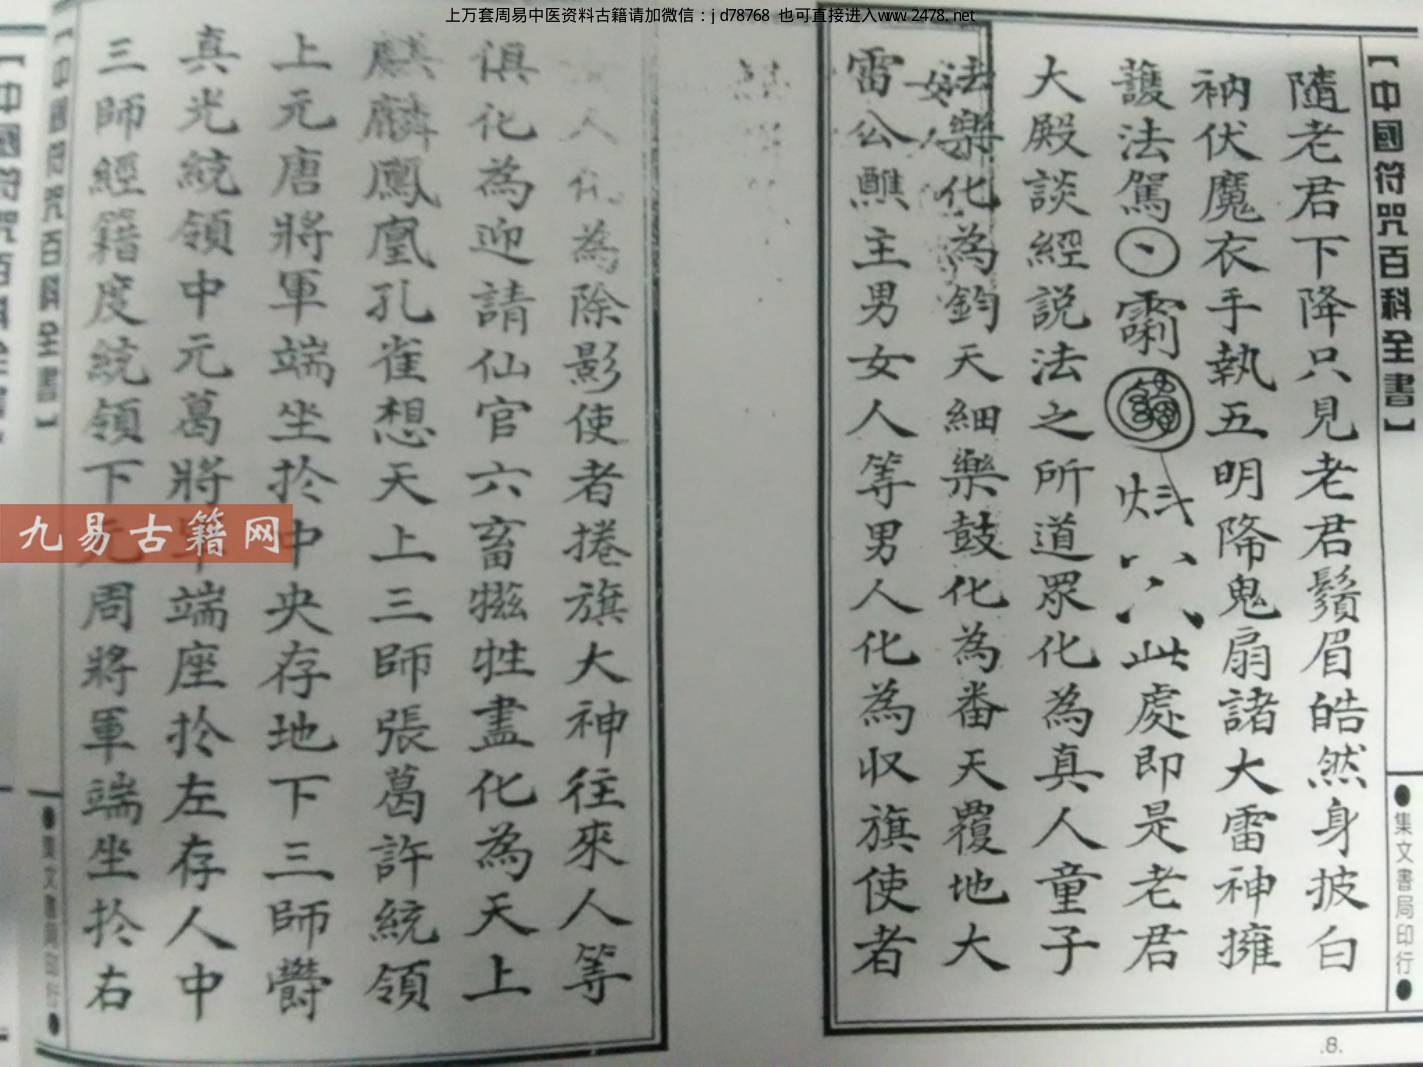 上万套周易中医资料古籍请加微信：jd78768 也可直接进入www.2478.net
【中國符咒百科全書】
●集文書局印行●
隨老君下降只見老君鬚眉皓然身披白
衲伏魔衣手執五明降鬼扇諸大雷神擁
護法駕此處即是老君
大殿談經説法之所道眾化為真人童子
法樂化為鈞天細樂鼓化為番天覆地大
雷公醮主男女人等男人化為収旗使者
.8.
女人化為除影使者捲旗大神往來人等
俱化為迎請仙官六畜犧牲盡化為天上
麒麟鳳凰孔雀想天上三師張葛許統領
上元唐將軍端坐扵中央存地下三師
真光統領中元葛將軍端座扵左存人中
三師經籍度統領下元周將軍端坐扵右
【中國符咒百科全書】
●集文書局印行●
【中國符咒百科全書】
九易古籍网